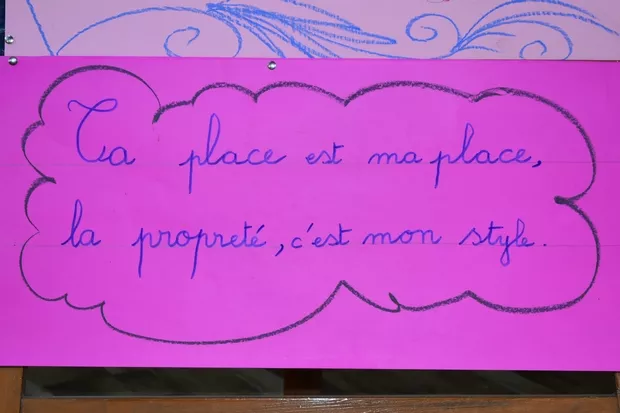 Ta place est ma place,
la propreté, c'est mon style.